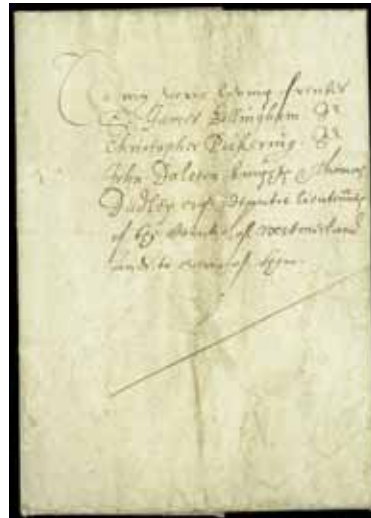 To my verie loving frendes
Sr James Bellingham Sr
Christopher Pickering Sr
John Dalston knightes Thomas
Dudley esqr deputie lieutennts
of the Countie of westmorland
and to everie of them